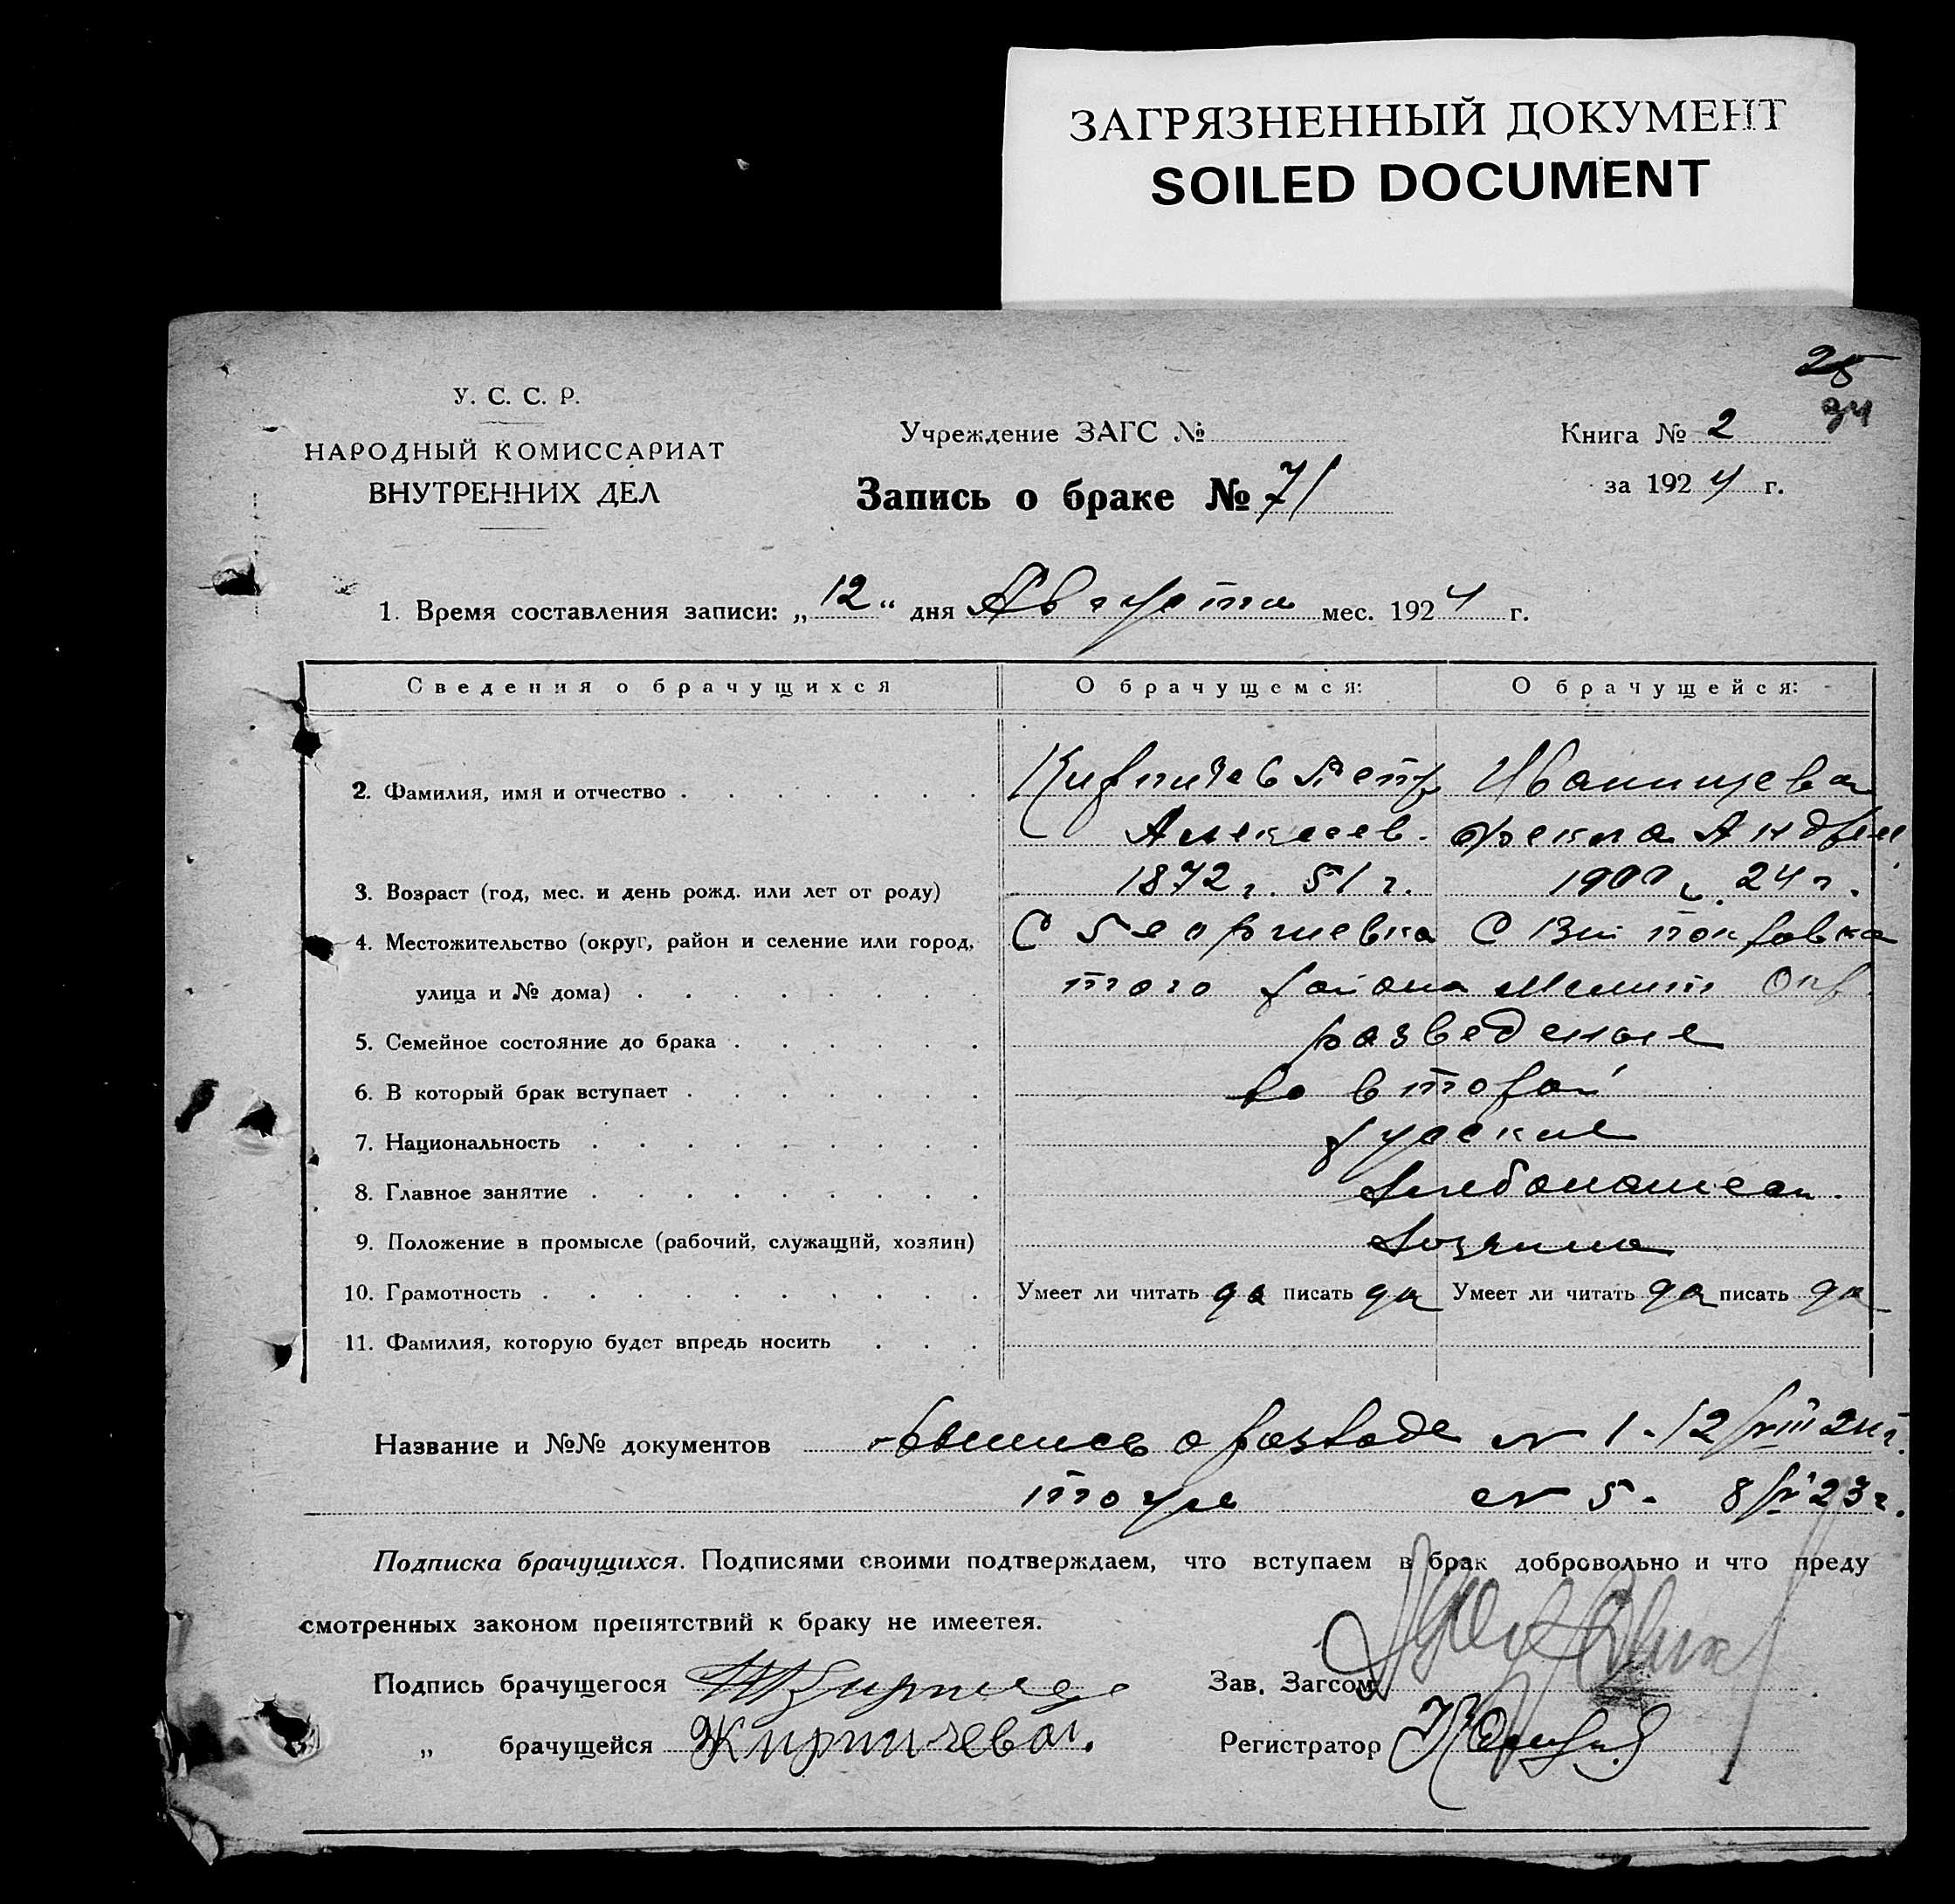 ЗАГРЯЗНЕННЫЙ ДОКУМЕНТ
SOILED DOCUMENT
25
34
У. С. С. Р.
НАРОДНЫЙ КОМИССАРИАТ
ВНУТРЕННИХ ДЕЛ
Учреждение ЗАГС №
Запись о браке № 71
Книга № 2
за 1924 г.
1. Время составления записи: „12“ дня Августа мес. 1924 г.
Сведения о брачущихся О брачущемся: О брачущейся:
2. Фамилия, имя и отчество Кирпичев Петр Иванищева
Алексеев. Фекла Андреи
3. Возраст (год, мес. и день рожд. или лет от роду) 1872 г. 51 г. 1900 г. 24 г.
4. Местожительство (округ, район и селение или город, С Георгиевка С Вш покровка
улица и № дома) того района Мелит Окр
5. Семейное состояние до брака разведеные
6. В который брак вступает во второй
7. Национальность руские
8. Главное занятие хлебопашест.
9. Положение в промысле (рабочий, служащий, хозяин) хозяина
10. Грамотность Умеет ли читать да писать да Умеет ли читать да писать да
11. Фамилия, которую будет впредь носить
Название и №№ документов выпись о разводе № 1 - 12/VIII 24 г.
тоже № 5 - 8/ 23 г.
Подписка брачущихся. Подписями своими подтверждаем, что вступаем в брак добровольно и что преду
смотренных законом препятствий к браку не имеетея.
Подпись брачущегося Кирпичев Зав. Загсом
„ брачущейся Кирпичева. Регистратор